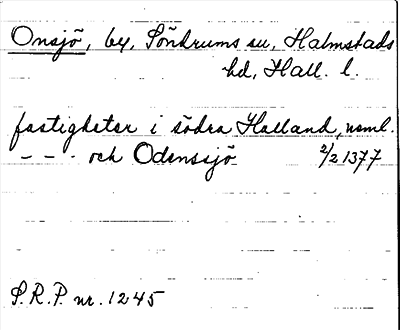 Onsjö, by, Söndrums sn, Halmstads
hd, Hall. l.
fastigheter i södra Halland, näml.
– – - och Odenssjö 2/2 1377
S.R.P. nr. 1245